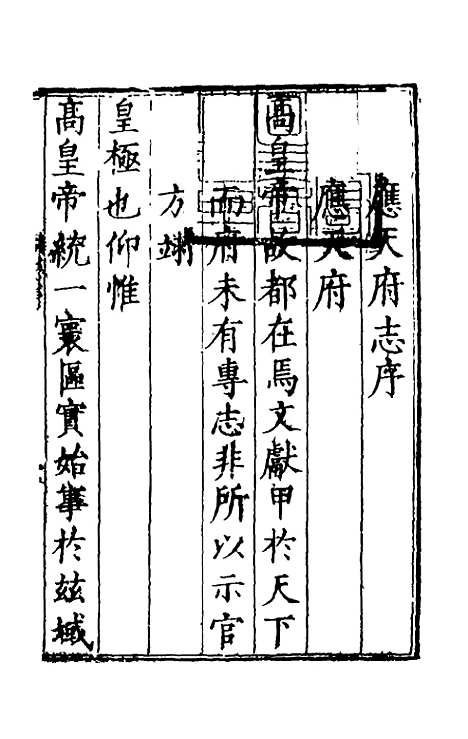 應天府志序
應天府
高皇帝故都在焉文獻甲於天下
而府未有專志非所以示官
方翊
皇極也仰惟
高皇帝統一寰區實始事於兹域